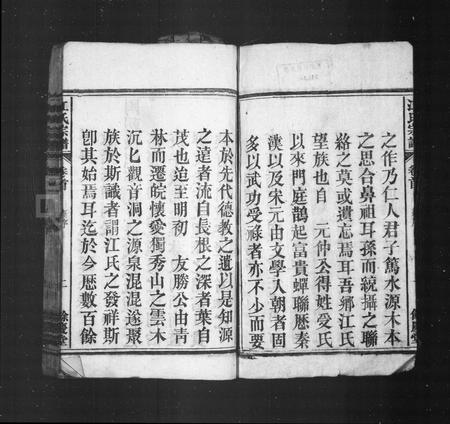 之作乃仁人君子篤水源木本
之思合鼻祖耳孫而統攝之聯
絡之莫或遺忘焉耳吾鄉江氏
望族也自 元仲公得姓受氏
以來門庭鵲起富貴蟬聯歷秦
漢以及宋元由文學入朝者固
多以武功受祿者亦不少而要
本於先代德教之遺以是知源
之遠者流自長根之深者葉自
茂也迨至明初 友勝公由青
林而遷皖懷愛獨秀山之雲木
沉匕觀音洞之源泉混混遂聚
族於斯識者謂江氏之發祥斯
卽其始焉耳迄於今歷數百餘
江氏宗譜
卷首
餘慶堂
江氏宗譜
卷首
餘慶堂